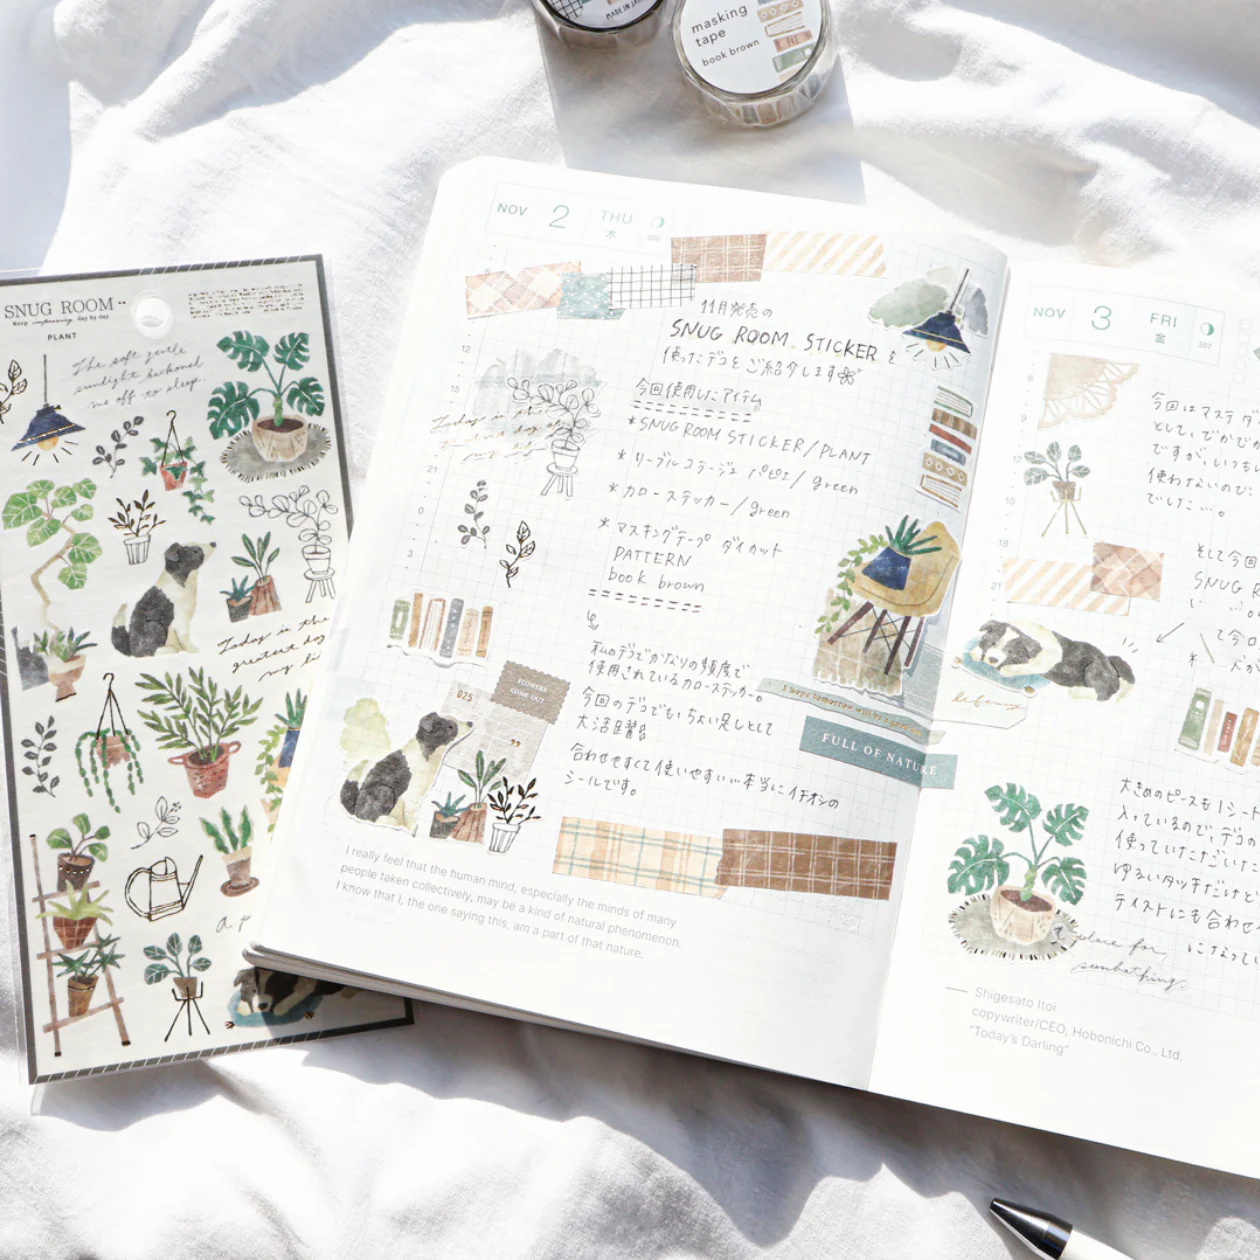 MADE IN JAPAN
masking
tape
book brown
SNUG ROOM
Keep improving day by day
PLANT
The soft gentle
sunlight beckoned
me off to sleep.
Today is the
greatest day
my li
a p
NOV 2 THU
木
11月発売の
SNUG ROOM STICKER を
使ったデコをご紹介します
今回使用したアイテム
*SNUG ROOM STICKER/PLANT
*リーブルコラージュ パピエ/green
*カローステッカー/green
*マスキングテープ ダイカット
PATTERN
book brown
私のデコでかなりの頻度で
使用されているカローステッカー。
今回のデコでもちょい足しとして
大活躍
合わせやすくて使いやすい 本当にイチオシの
シールです。
12
15
21
3
Today is the
greatest day of
my
025
FLOWERS
COME OUT
I hope tomorrow will be a
FULL OF NATURE
I really feel that the human mind, especially the minds of many
people taken collectively, may be a kind of natural phenomenon.
I know that I, the one saying this, am a part of that nature.
NOV 3 FRI
金
307
6
9
12
15
21
今回はマステ
として、でかでか
ですが、いつも
使わないので
でした…。
そして今回
SNUG R
て今回
大きめのピースも1シー
入っているので、デコの
使っていただいた
ゆるいタッチだけど
テイストにも合わせ
a place for
sunbathing.
Shigesato Itoi
copywriter/CEO, Hobonichi Co., Ltd.
"Today's Darling"